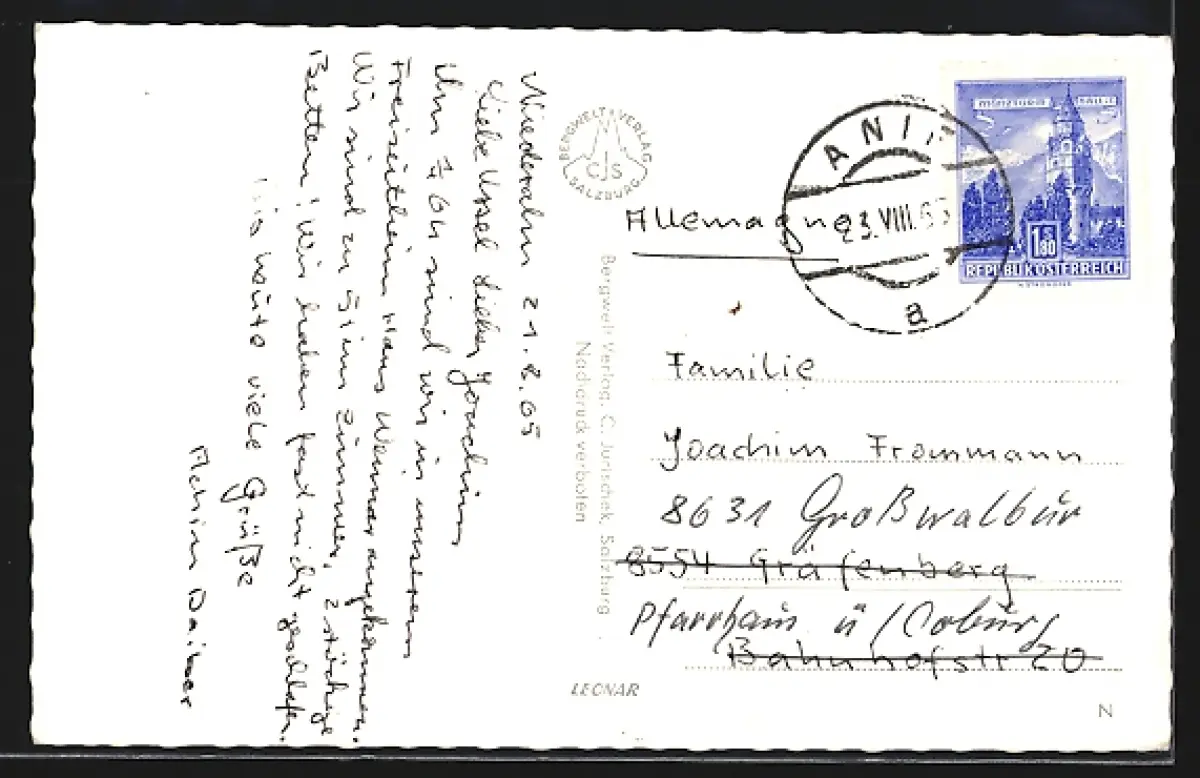 Niederalm 21.8.65
Liebe Ursel Lieber Joachim
Um 7 64 sind wir in unserem
Freizeitheim Haus Werner angekommen.
Wir sind zu 5 im Zimmer, 2 stöckige
Betten! Wir haben fast nicht geschlafen.
heute viele Grüße
Achim Daiber
BERGWELT-VERLAG
CJS
SALZBURG
Bergwelt Verlag, C. Jurischek, Salzburg
Nachdruck verboten
ANIF
23.VIII.65
a
MÜNZTURM
HALL I.T.
1 S 80
REPUBLIK ÖSTERREICH
Allemagne
Familie
Joachim Frommann
8631 Großwalbur
8554 Gräfenberg
Pfarrhaus ü/Coburg
Bahnhofstr 20
LEONAR
N